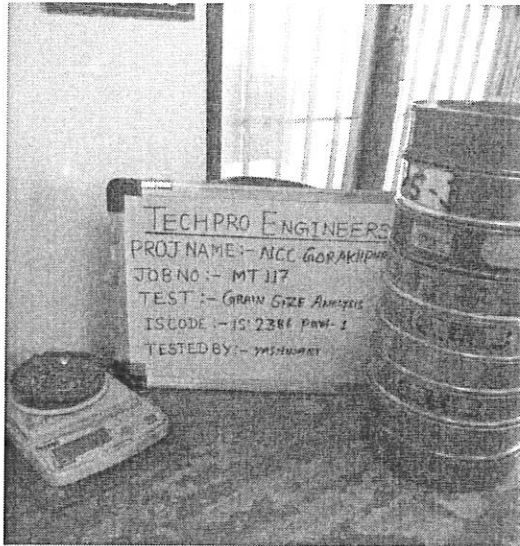 TECHPRO ENGINEERS
PROJ NAME:- NCC GORAKHPUR
JOB NO :- MT 117
TEST :- GRAIN SIZE ANALYSIS
IS CODE :- IS: 2386 Part-1
TESTED BY:- YASHWANT